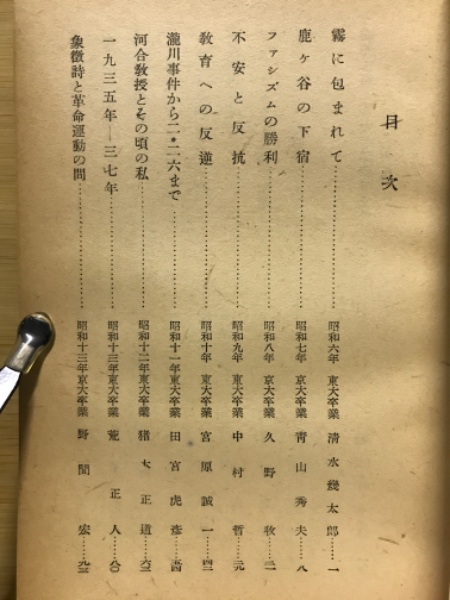 目次
霧に包まれて……………昭和六年 東大卒業 清水幾太郎…一
鹿ヶ谷の下宿……………昭和七年 京大卒業 青山秀夫…八
ファシズムの勝利……………昭和八年 京大卒業 久野收…二一
不安と反抗……………昭和九年 東大卒業 中村哲…二九
教育への反逆……………昭和十年 東大卒業 宮原誠一…四二
瀧川事件から二・二六まで……………昭和十一年東大卒業 田宮虎彦…五四
河合教授とその頃の私……………昭和十二年東大卒業 猪木正道…六三
一九三五年―三七年……………昭和十三年東大卒業 荒正人…八〇
象徴詩と革命運動の間……………昭和十三年京大卒業 野間宏…九三